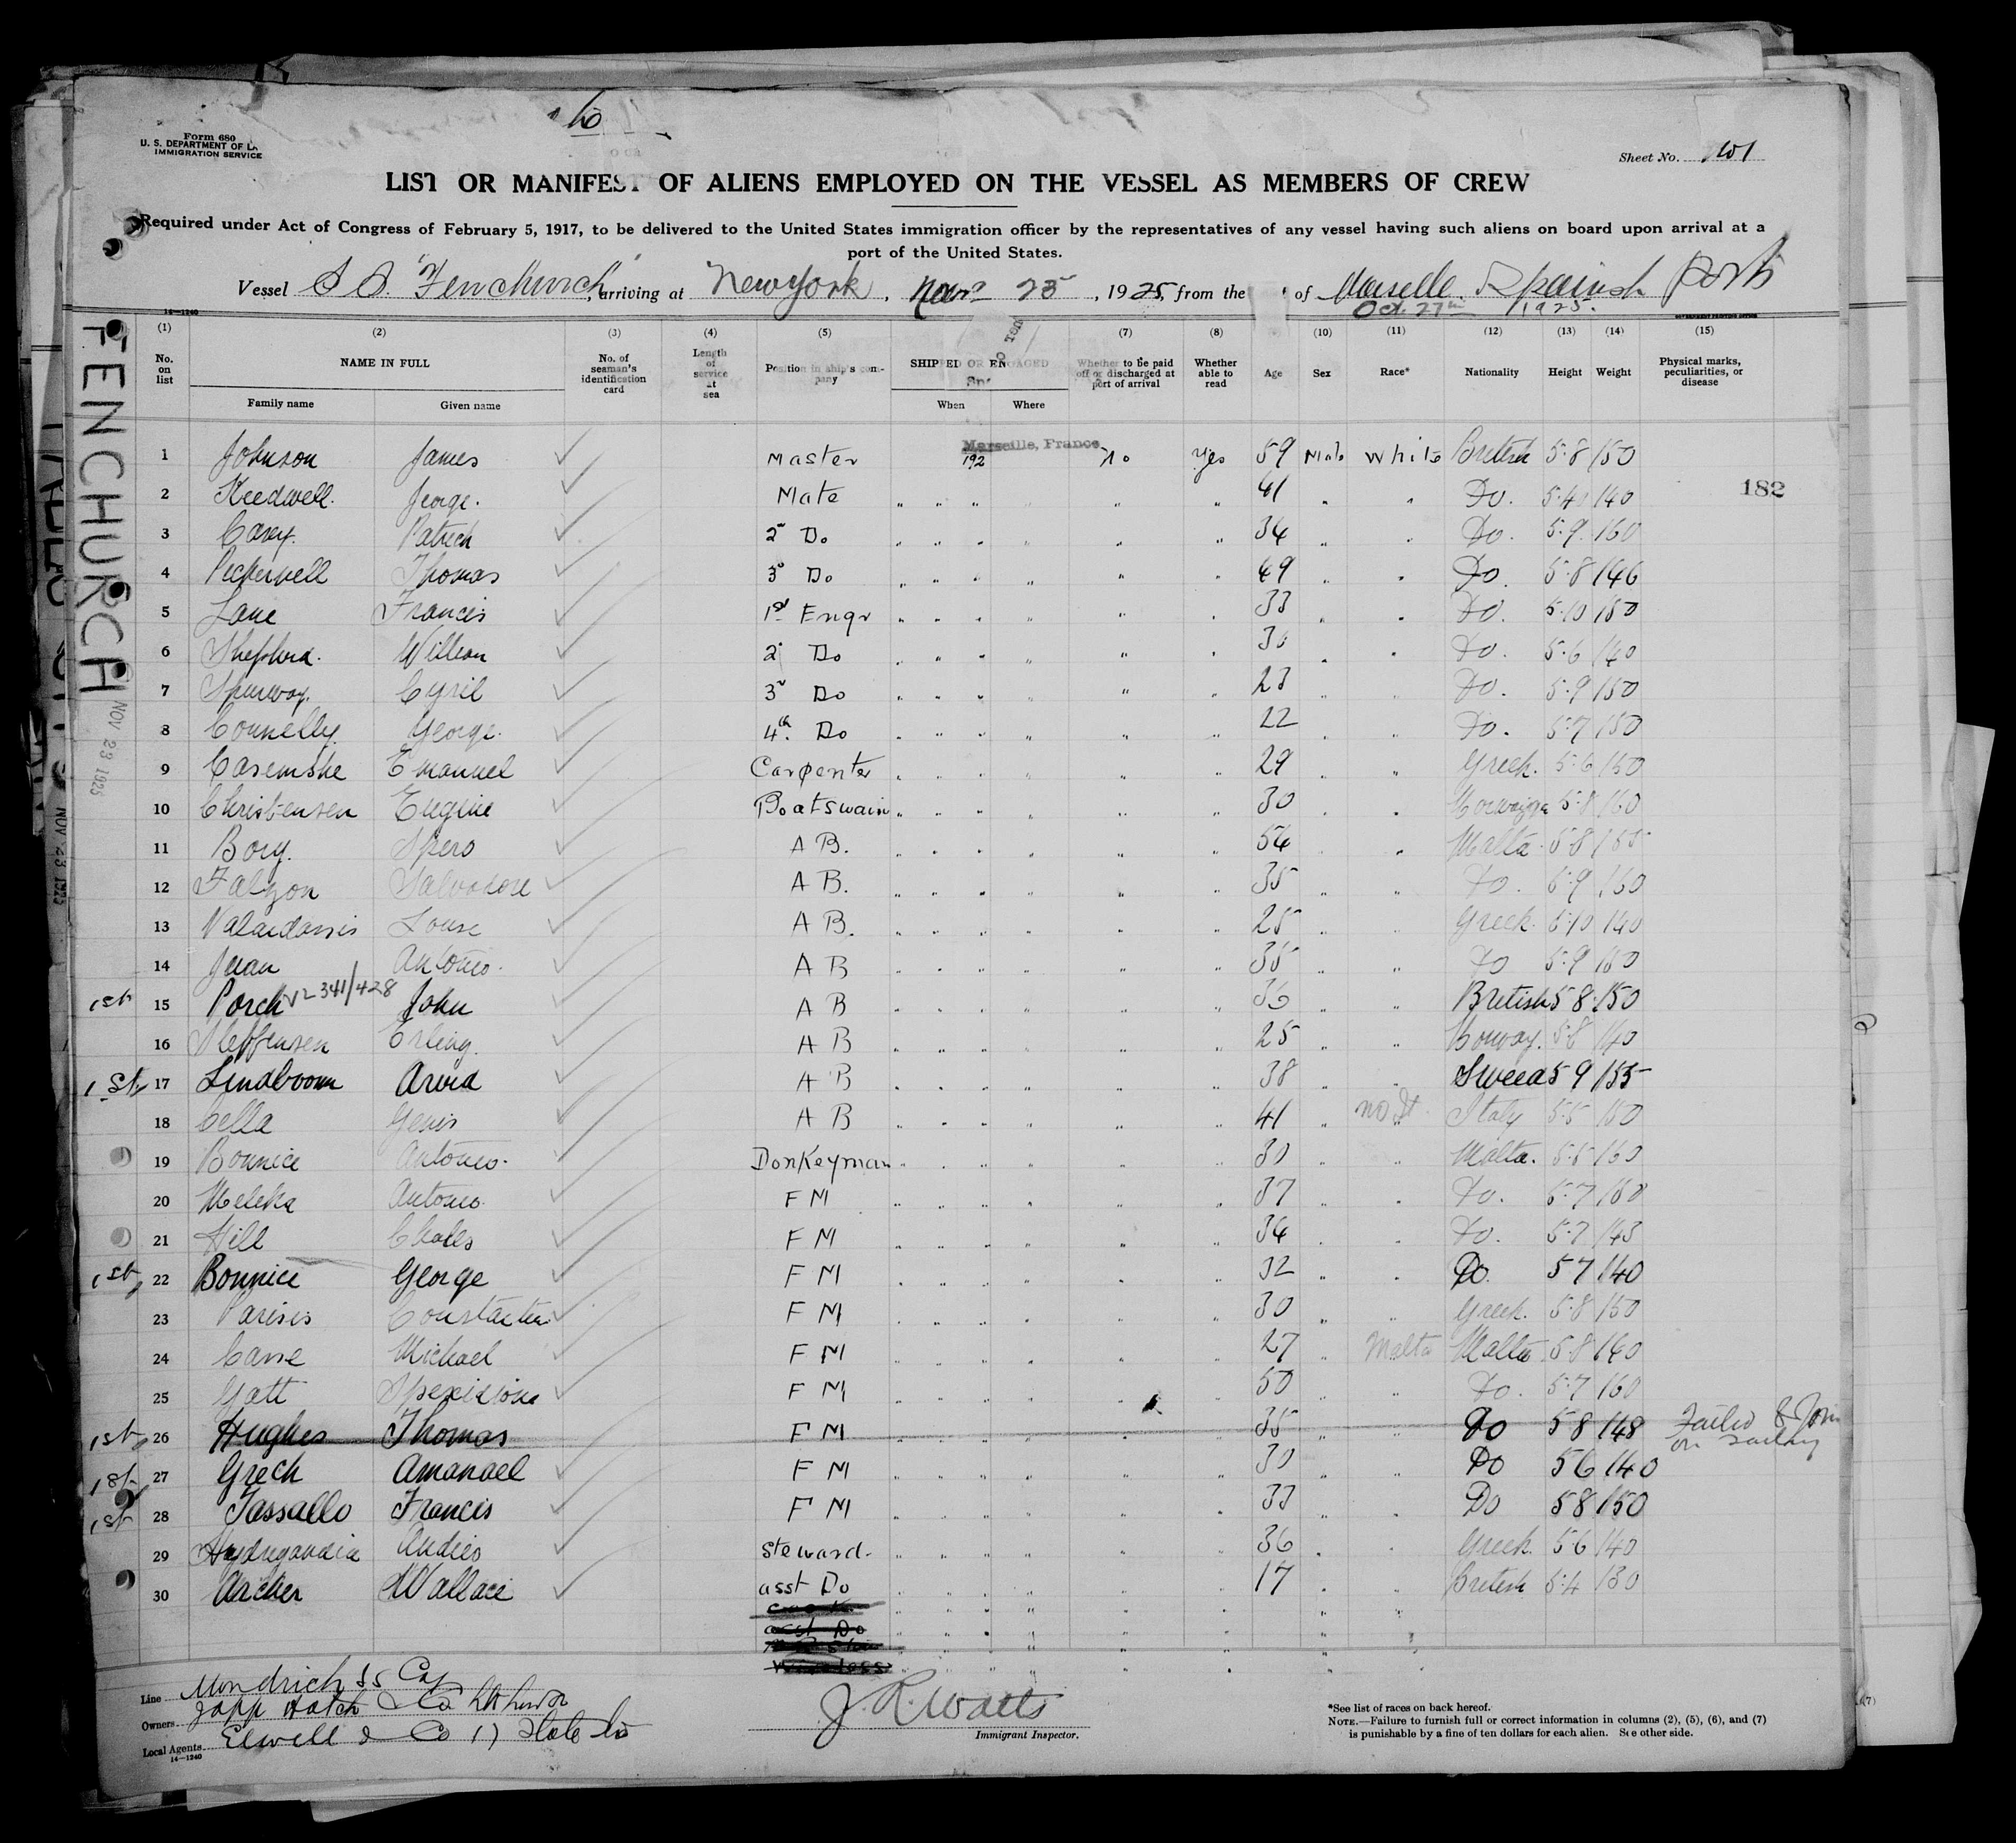 Form 680
U. S. DEPARTMENT OF LA
IMMIGRATION SERVICE
Sheet No.
LIST OR MANIFEST OF ALIENS EMPLOYED ON THE VESSEL AS MEMBERS OF CREW
Required under Act of Congress of February 5, 1917, to be delivered to the United States immigration officer by the representatives of any vessel having such aliens on board upon arrival at a
port of the United States.
Vessel S.S. "Fenchurch", arriving at New York, Nov 23, 1925, from the of Marselle. Spainsh Ports
Oct. 27th 1925.
14—1240
(1) (2) (3) (4) (5) (7) (8) (10) (11) (12) (13) (14) (15)
No. on list NAME IN FULL No. of seaman's identification card Length of service at sea Position in ship's company SHIPPED OR ENGAGED Whether to be paid off or discharged at port of arrival Whether able to read Age Sex Race* Nationality Height Weight Physical marks, peculiarities, or disease
Family name Given name When Where
Marseille, France
1 Johnson James Master 192 No Yes 59 Male White British 5·8 150
182
2 Keedwell. George. Mate " " " " " " 41 " " Do. 5·4 140
3 Casey. Patrick 2nd Do " " " " " " 34 " " Do. 5·9 160
4 Peckerwell Thomas 3rd Do " " " " " " 49 " " Do 5·8 146
5 Lane Francis 1st Engr " " " " " " 33 " " Do. 5·10 180
6 Shepherd. William 2 Do " " " " " " 30 " " Do. 5·6 140
7 Spurway. Cyril 3rd Do " " " " " " 23 " " Do. 5·9 150
8 Connelly. George. 4th Do " " " " " " 22 " " Do. 5·7 150
9 Casemshe Emanuel Carpenter " " " " " " 29 " " Greek. 5·6 150
10 Christensen Eugine Boatswain " " " " " " 30 " " 5·8 160
11 Borg. Spero A B. " " " " " " 54 " " Malta 5·8 155
12 Falzon Salvadore A B. " " " " " " 35 " " Do. 5·9 160
13 Valaidassis Louse A B. " " " " " " 25 " " Greek. 5·10 140
14 Juan Antonio. A B " " " " " " 35 " " Do 5·9 150
1st 15 Porch V2 341/428 John A B " " " " " " 36 " " British 5 8 150
16 Steffensen Erling. A B " " " " " " 25 " " Norway. 5·8 140
1st 17 Lindboom Arvid A B " " " " " " 38 " " Sweed 5 9 155
18 Cella Genis A B " " " " " " 41 " no It Italy 5·5 150
19 Bonnice Antonio. Donkeyman " " " " " " 30 " " Malta. 5·5 160
20 Meleka Antonio. F M " " " " " " 37 " " Do. 5·7 160
21 Hill Chales F M " " " " " " 34 " " Do. 5·7 143
1st 22 Bonnice George F M " " " " " " 32 " " Do. 5 7 140
23 Parisis F M " " " " " " 30 " " Greek. 5·8 150
24 Michael F M " " " " " " 27 " Malta Malta 5·8 140
25 Gatt F M " " " " " " 50 " " Do. 5·7 160
1st 26 Hughes Thomas F M " " " " " " 35 " " Do 5 8 148 Failed to Join
on sailing
1st 27 Grech Amanael F M " " " " " " 30 " " Do 5 6 140
1st 28 Tassallo Francis F M " " " " " " 33 " " Do 5 8 150
29 Andies Steward. " " " " " " 36 " " Greek. 5·6 140
30 Archer Wallace asst Do " " " " " " 17 " " British 5·4 130
asst Do
Line
Owners
Local Agents Elwell & Co 17 State St
14—1240
J. R. Watts
Immigrant Inspector.
*See list of races on back hereof.
NOTE.—Failure to furnish full or correct information in columns (2), (5), (6), and (7)
is punishable by a fine of ten dollars for each alien. See other side.
FENCHURCH
NOV 23 1925
NOV 23 1925